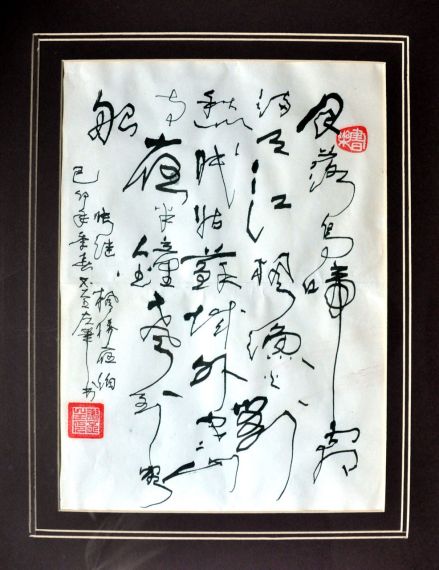 月落烏啼霜
滿天江楓漁火對
愁眠姑蘇城外寒山
寺夜半鐘聲到客
船
張继·楓桥夜泊
己卯年季春左筆书